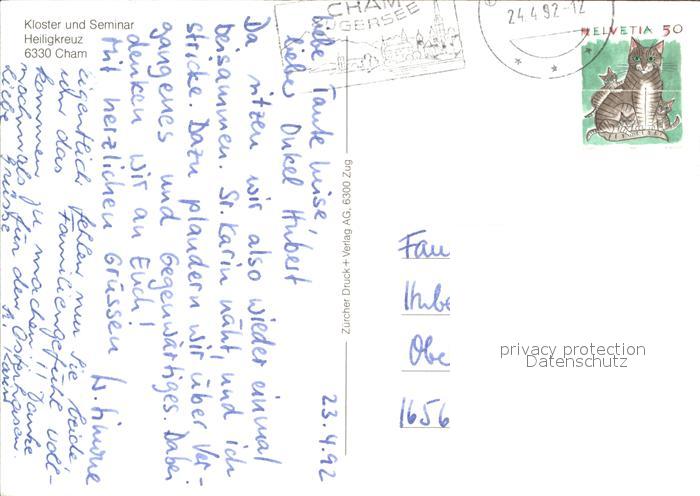 Kloster und Seminar
Heiligkreuz
6330 Cham
CHAM
ZUGERSEE
24.4.92-12
HELVETIA 50
23.4.92
Liebe Tante Luise,
lieber Onkel Hubert
Da sitzen wir also wieder einmal
beisammen. Sr. Karin näht, und ich
stricke. Dazu plaudern wir über Ver-
gangenes und Gegenwärtiges. Dabei
denken wir an Euch!
Mit herzlichen Grüssen Sr. Simone
Eigentlich fehlen nur Sie beide
um das Familiengefühl voll-
kommen zu machen!! Danke
nochmals für den Osterhasen.
Liebe Grüsse Sr. Karin
Zürcher Druck + Verlag AG, 6300 Zug
Fam
Hube
Obe
1656
privacy protection
Datenschutz